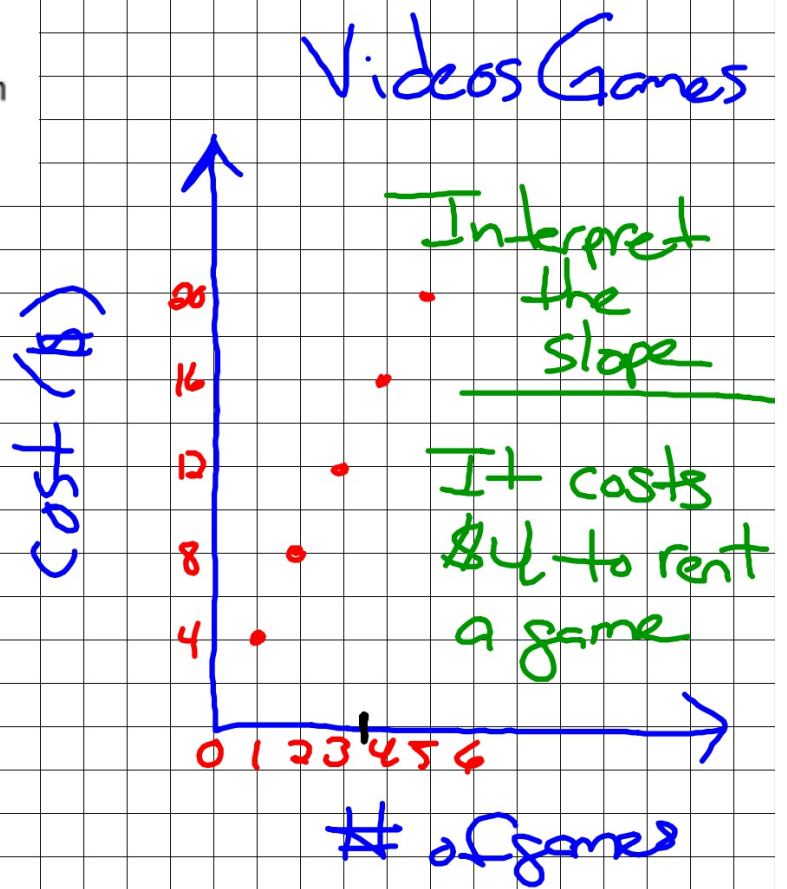 n
Videos Games
Interpret
the
slope
It costs
$4 to rent
a game
Cost ($)
20
16
12
8
4
0 1 2 3 4 5 6
# of games